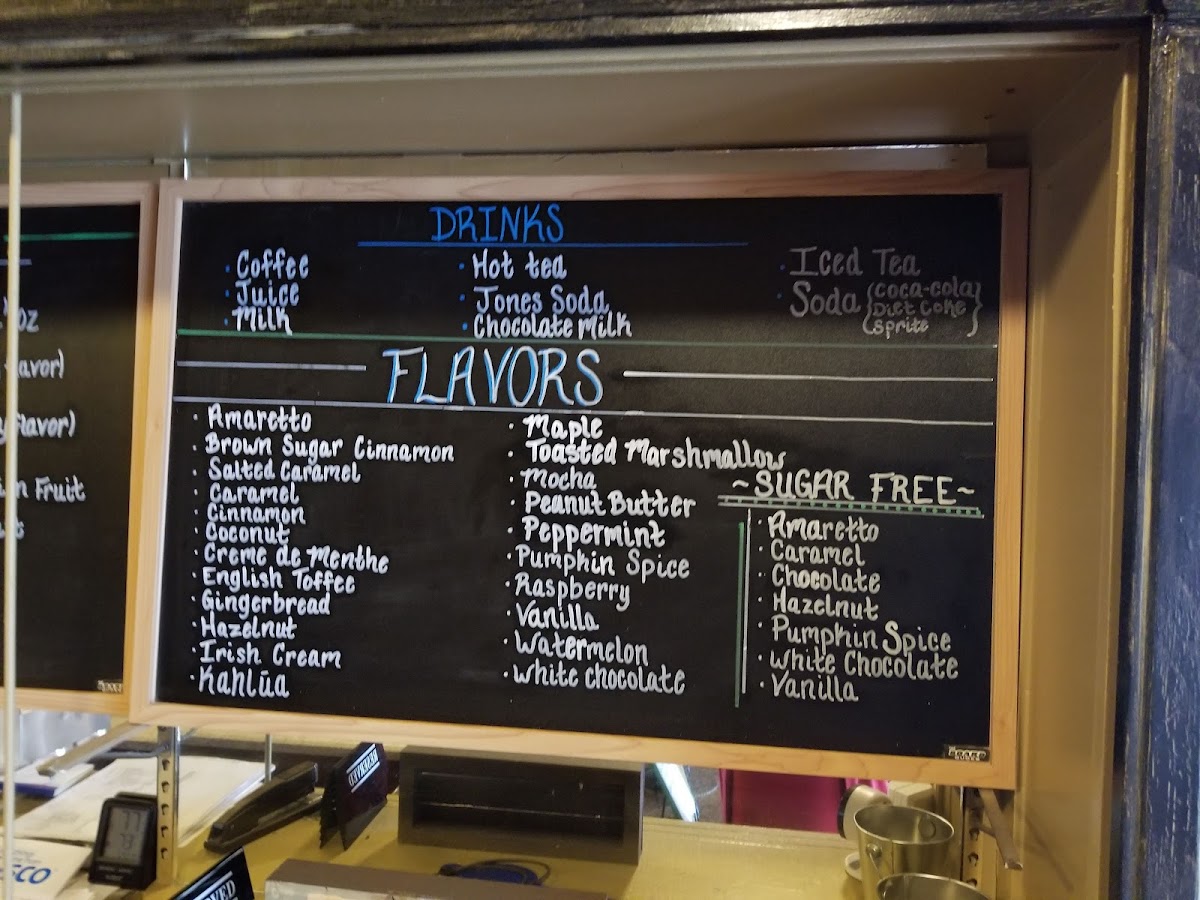 oz
avor)
Flavor)
Fruit
DRINKS
· Coffee
· Juice
· Milk
· Hot tea
· Jones Soda
· Chocolate Milk
· Iced Tea
· Soda {Coca-cola
Diet Coke
Sprite}
FLAVORS
· Amaretto
· Brown Sugar Cinnamon
· Salted Caramel
· Caramel
· Cinnamon
· Coconut
· Creme de Menthe
· English Toffee
· Gingerbread
· Hazelnut
· Irish Cream
· Kahlūa
· Maple
· Toasted Marshmallow
· Mocha
· Peanut Butter
· Peppermint
· Pumpkin Spice
· Raspberry
· Vanilla
· Watermelon
· White chocolate
~SUGAR FREE~
· Amaretto
· Caramel
· Chocolate
· Hazelnut
· Pumpkin Spice
· White Chocolate
· Vanilla
RESERVED
SCO
VED